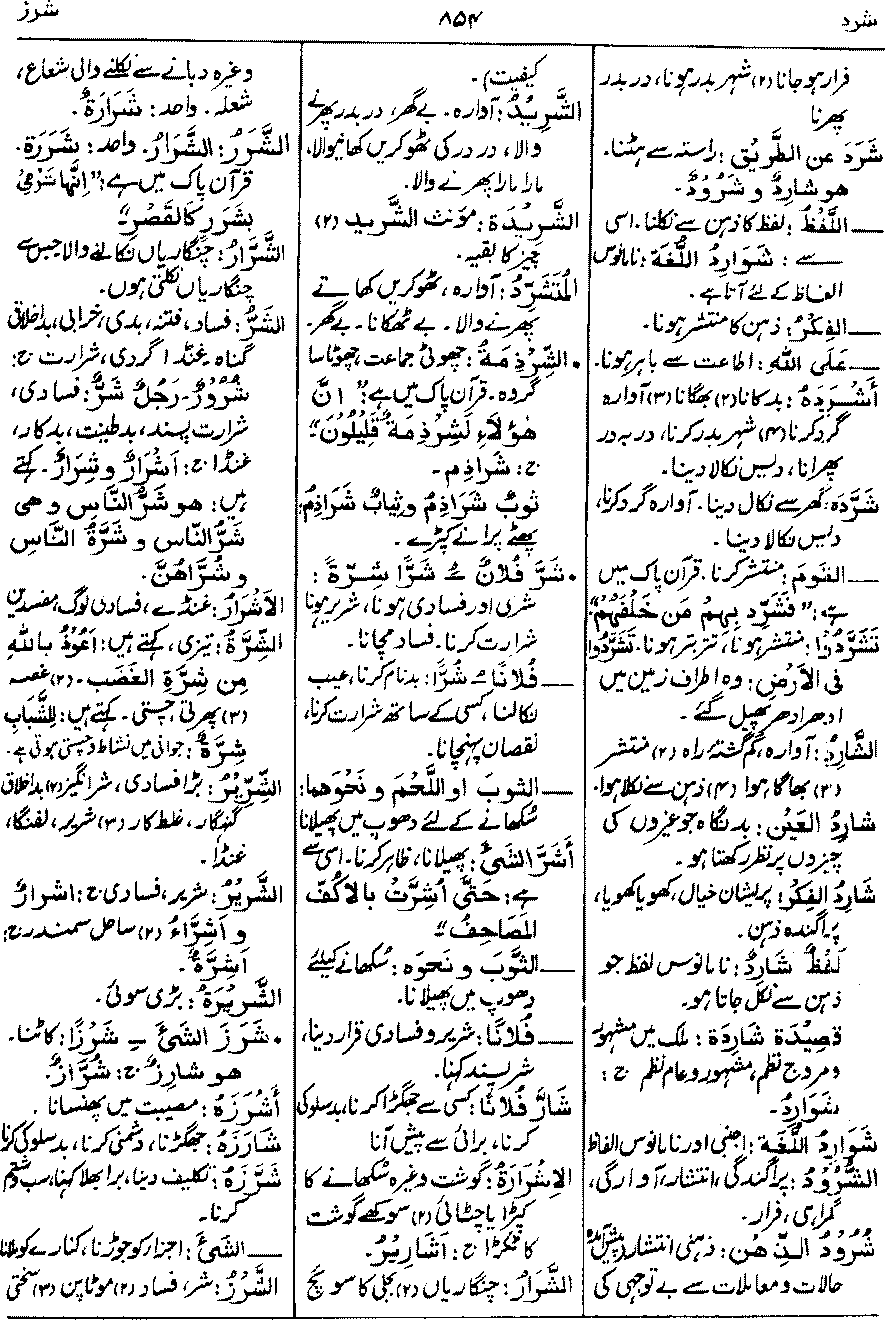 شرد
۸۵۴
شرز
فرار ہو جانا (۲) شہر بدر ہونا، در بدر
پھرنا
شَرَدَ عن الطَّرِیْق : راستہ سے ہٹنا۔
هو شارِدٌ و شَرُوْدٌ۔
— اللَّفْظُ : لفظ کا ذہن سے نکلنا۔ اسی
سے : شَوارِدُ اللُّغَة : نامانوس
الفاظ کے لئے آتا ہے۔
— الفِكْرُ : ذہن کا منتشر ہونا۔
— عَلَى اللهِ : اطاعت سے باہر ہونا۔
أَشْرَدَهُ : بدکانا (۲) بھگانا (۳) آوارہ
گرد کرنا (۴) شہر بدر کرنا، در بہ در
پھرانا، دلیس نکالا دینا۔
شَرَّدَه : گھر سے نکال دینا۔ آوارہ گرد کرنا،
دلیس نکالا دینا۔
— القومَ : منتشر کرنا۔ قرآن پاک میں
ہے : "فَشَرِّدْ بِهِمْ مَن خَلْفَهُمْ"
تَشَرَّدُوْا : منتشر ہونا، تتر بتر ہونا۔ تَشَرَّدُوا
فی الأرْضِ : وہ اطراف زمین میں
ادھر ادھر پھیل گئے۔
الشَّارِدُ : آوارہ، گم گشتۂ راہ (۲) منتشر
(۳) بھاگا ہوا (۴) ذہن سے نکلا ہوا۔
شارِدُ العَیْن : بد نگاہ جو غیروں کی
چیزوں پر نظر رکھتا ہو۔
شارِدُ الفِكْر : پریشان خیال، کھویا کھویا،
پراگندہ ذہن۔
لَفْظٌ شارِدٌ : نامانوس لفظ جو
ذہن سے نکل جاتا ہو۔
قصِيْدَة شارِدَة : ملک میں مشہور
ومروج نظم، مشہور و عام نظم ج :
شَوارِدُ۔
شَوارِدُ اللُّغَة : اجنبی اور نامانوس الفاظ
الشُّرُوْدُ : پراگندگی، انتشار، آوارگی،
گمراہی، فرار۔
شُرُوْدُ الذِّهْن : ذہنی انتشار (پیش آمدہ
حالات و معاملات سے بے توجہی کی
کیفیت)۔
الشَّرِیْدُ : آوارہ۔ بے گھر، در بدر پھرنے
والا، در در کی ٹھوکریں کھانیوالا،
مارا مارا پھرنے والا۔
الشَّرِیْدَة : مؤنث الشَّرِيد (۲)
چیز کا لقیہ۔
المُتَشَرِّدُ : آوارہ، ٹھوکریں کھاتے
پھرنے والا۔ بے ٹھکانا۔ بے گھر۔
• الشِّرْذِمَةُ : چھوٹی جماعت، چھوٹا سا
گروہ۔ قرآن پاک میں ہے : "اِنَّ
هٰؤُلَاءِ لَشِرْذِمَةٌ قَلِيْلُوْنَ"
ج : شَراذِم۔
ثوبٌ شَراذِمُ وثِيابٌ شَراذِمُ :
پھٹے پرانے کپڑے۔
• شَرَّ فُلانٌ ـُ شَرًّا شِرَّةً :
شری اور فسادی ہونا، شریر ہونا
شرارت کرنا۔ فساد مچانا۔
— فُلانًا ـُ شُرًّا : بدنام کرنا، عیب
نکالنا، کسی کے ساتھ شرارت کرنا،
نقصان پہنچانا۔
— الثوبَ او اللَّحْمَ و نَحْوَهما :
سُکھانے کے لئے دھوپ میں پھیلانا
أشَرَّ الشَّیْءَ : پھیلانا، ظاہر کرنا۔ اسی سے
ہے : حَتّٰى أُشِرَّتْ بالأكُفِّ
المَصَاحِفُ"
— الثَّوْبَ و نَحْوَه : سُکھانے کیلئے
دھوپ میں پھیلانا۔
— فُلانًا : شریر و فسادی قرار دینا،
شر پسند کہنا۔
شارَّ فُلانًا : کسی سے جھگڑا کرنا، بدسلوکی
کرنا، برائی سے پیش آنا
الإشْرارَةُ : گوشت وغیرہ سُکھانے کا
کپڑا یا چٹائی (۲) سوکھے گوشت
کا ٹکڑا ج : أشارِیْرُ۔
الشَّرارُ : چنگاریاں (۲) بجلی کا سوئچ
وغیرہ دبانے سے نکلنے والی شعاع،
شعلہ۔ واحد : شَرارَةٌ۔
الشَّرَرُ : الشَّرارُ۔ واحد : شَرَرَة۔
قرآن پاک میں ہے : "اِنَّهَا تَرْمِیْ
بِشَرَرٍ كَالْقَصْرِ"
الشَّرَّارُ : چنگاریاں نکالنے والا جس سے
چنگاریاں نکلتی ہوں۔
الشَّرُّ : فساد، فتنہ، بدی، خرابی، بداخلاقی
گناہ غنڈا گردی، شرارت ج :
شُرُوْرٌ۔ رَجُلٌ شَرٌّ : فسادی،
شرارت پسند، بدطینت، بدکار،
غنڈا ج : أشْرارٌ وشِرارٌ۔ کہتے
ہیں : هو شَرُّ النَّاس و هی
شَرُّ النَّاس و شَرَّةُ النَّاس
و شُرَّاهُنَّ۔
الأشْرارُ : غنڈے، فسادی لوگ، مفسدین
الشِّرَّةُ : تیزی، کہتے ہیں : اَعُوْذُ بِاللّٰهِ
مِن شِرَّةِ الغَضَب۔ (۲) غصہ
(۳) پھرتی، چستی۔ کہتے ہیں : لِلشَّبابِ
شِرَّةٌ : جوانی میں نشاط و چستی ہوتی ہے۔
الشِّرِّیْرُ : بڑا فسادی، شر انگیز (۲) بداخلاق
گنہگار، غلط کار (۳) شریر، لفنگا،
غنڈا۔
الشَّرِیْرُ : شریر، فسادی ج : اشرارٌ
و أشِرَّاءُ (۲) ساحل سمندر ج :
أشِرَّةٌ۔
الشَّرِیْرَةُ : بڑی سوئی۔
• شَرَزَ الشَّیْءَ ـِ شَرْزًا : کاٹنا۔
هو شارِزٌ ج : شُرَّازٌ۔
أشْرَزَهُ : مصیبت میں پھنسانا۔
شارَزَهُ : جھگڑنا، دشمنی کرنا، بدسلوکی کرنا
شَرَّزَهُ : تکلیف دینا، برا بھلا کہنا، سب و شتم
کرنا۔
— الشَّیْءَ : اجزار کو جوڑنا، کنارے کو ملانا
الشَّرْزُ : شر، فساد (۲) موٹاپن (۳) سختی